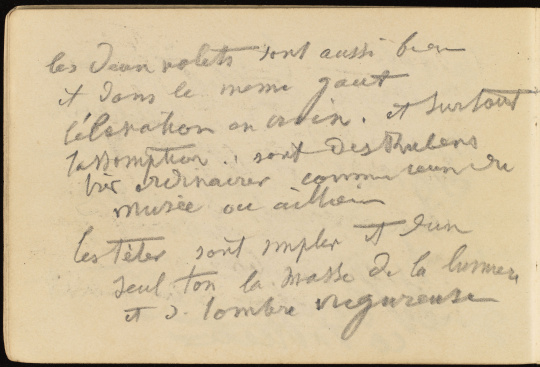 les deux volets sont aussi bien
et dans le meme gout
l'elevation en croix. et surtout
l'assomption.. sont des Rubens
très ordinaires comme ceux du
musée ou ailleurs
les têtes sont simples et d'un
seul ton la masse de la lumiere
et d l'ombre vigoureuse